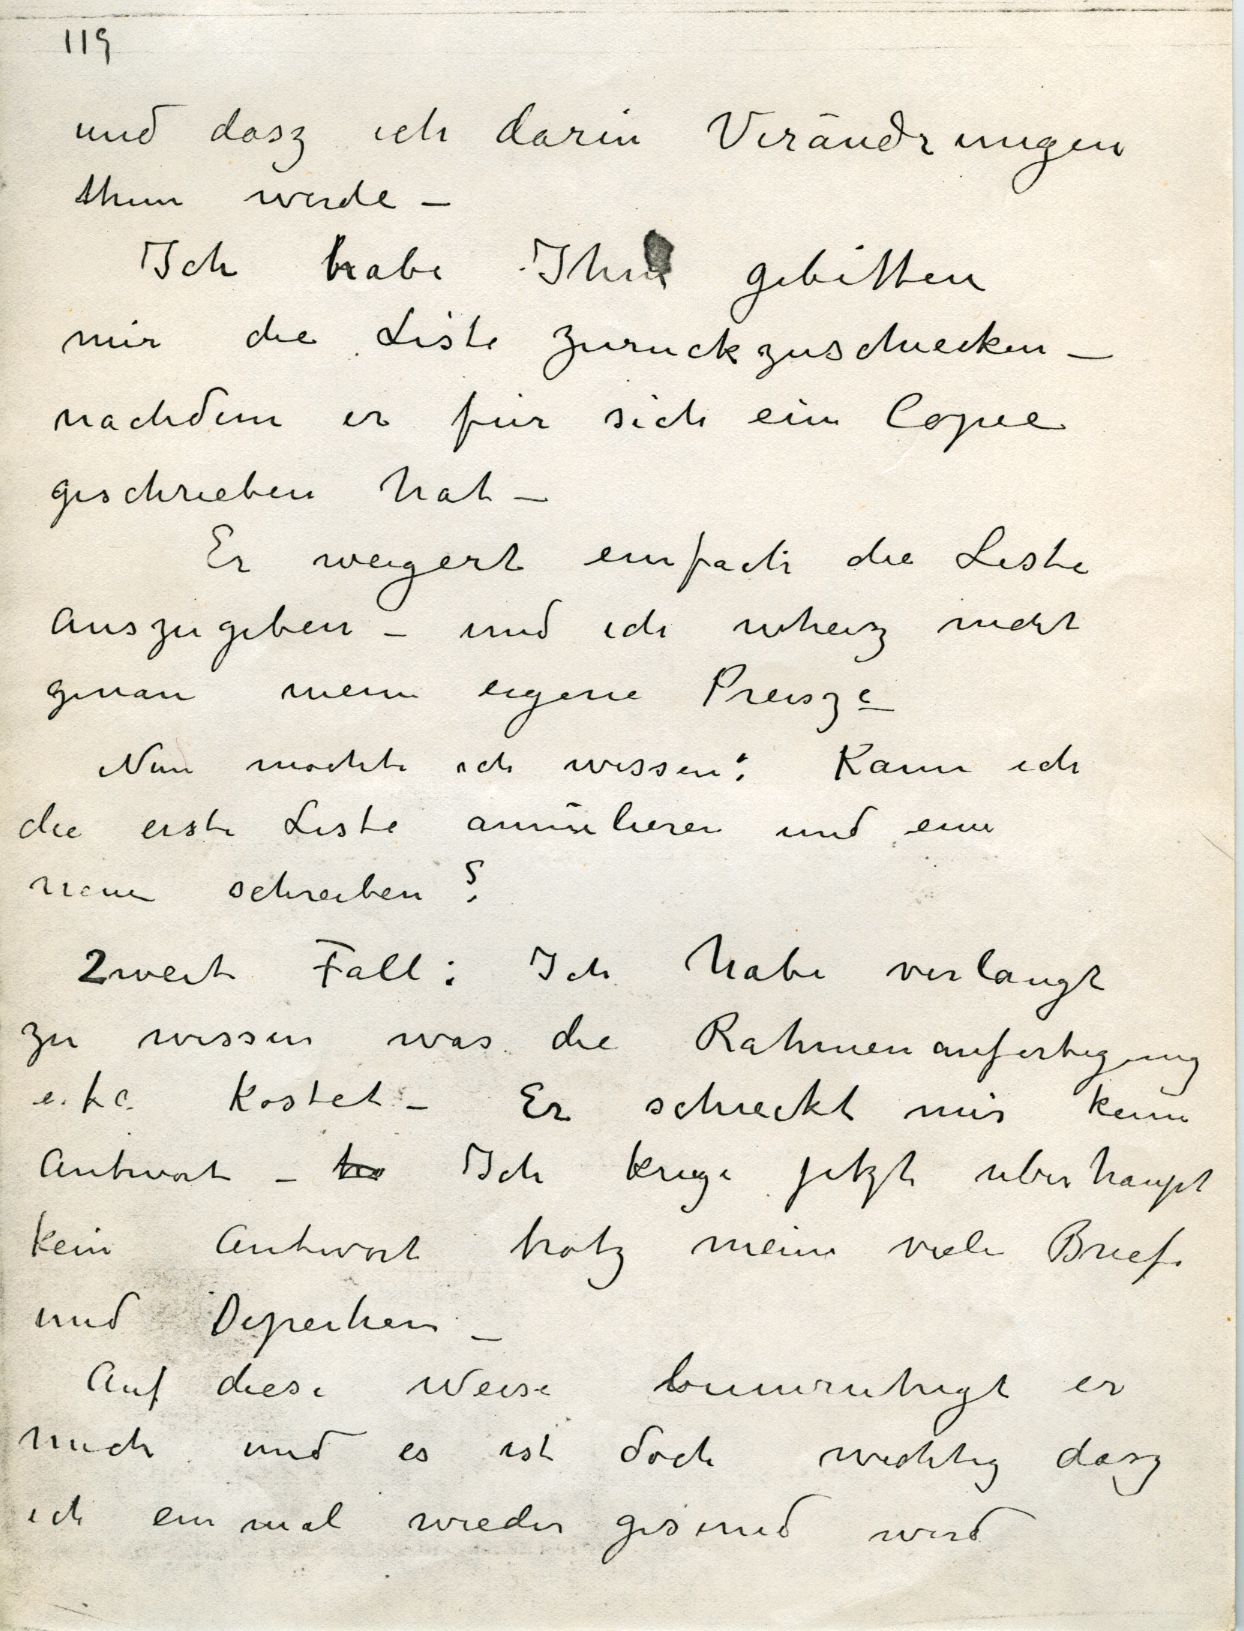 119
und dasz ich darin Verändrungen
thun werde –
Ich habe Ihm gebitten
mir die Liste zuruckzuschiecken –
nachdem er für sich ein Copie
geschrieben hat –
Er weigert einfach die Liste
auszugeben – und ich wheiz nicht
genau mein eigene Preisze –
Nun mochte ich wissen: Kann ich
die erste Liste annulieren und eine
neue schreiben?
2weit Fall: Ich habe verlangt
zu wissen was die Rahmenanfertigung
e.t.c. kostet – Er schieckt mir kein
Antwort – Ich kriege jetzt uberhaupt
kein Antwort trotz meine viele Briefe
und Depechen –
Auf diese Weise beunruhigt er
mich und es ist doch wichtig dasz
ich ein mal wieder gesund werd